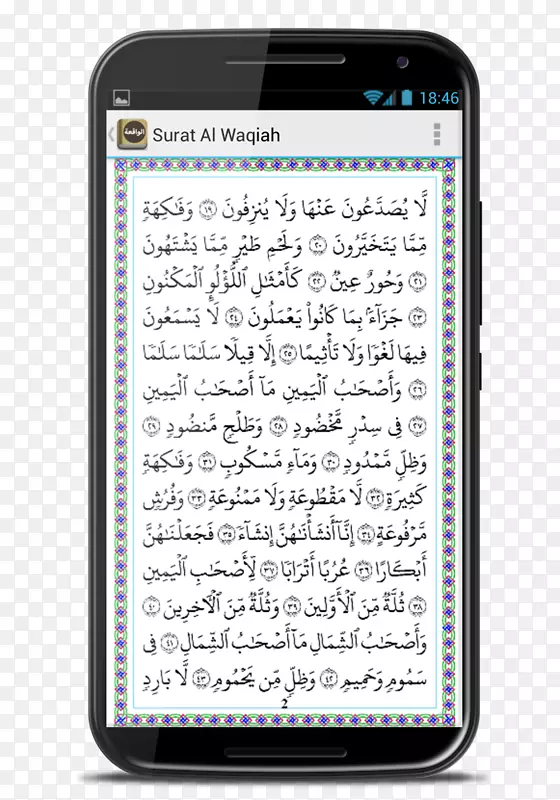 18:46
الواقعة
Surat Al Waqiah
لَّا يُصَدَّعُونَ عَنْهَا وَلَا يُنزِفُونَ ١٩ وَفَٰكِهَةٍ
مِّمَّا يَتَخَيَّرُونَ ٢٠ وَلَحْمِ طَيْرٍ مِّمَّا يَشْتَهُونَ
٢١ وَحُورٌ عِينٌ ٢٢ كَأَمْثَٰلِ ٱللُّؤْلُوِٕ ٱلْمَكْنُونِ
٢٣ جَزَآءًۢ بِمَا كَانُوا۟ يَعْمَلُونَ ٢٤ لَا يَسْمَعُونَ
فِيهَا لَغْوًا وَلَا تَأْثِيمًا ٢٥ إِلَّا قِيلًا سَلَٰمًا سَلَٰمًا
٢٦ وَأَصْحَٰبُ ٱلْيَمِينِ مَآ أَصْحَٰبُ ٱلْيَمِينِ
٢٧ فِى سِدْرٍ مَّخْضُودٍ ٢٨ وَطَلْحٍ مَّنضُودٍ ٢٩
وَظِلٍّ مَّمْدُودٍ ٣٠ وَمَآءٍ مَّسْكُوبٍ ٣١ وَفَٰكِهَةٍ
كَثِيرَةٍ ٣٢ لَّا مَقْطُوعَةٍ وَلَا مَمْنُوعَةٍ ٣٣ وَفُرُشٍ
مَّرْفُوعَةٍ ٣٤ إِنَّآ أَنشَأْنَٰهُنَّ إِنشَآءً ٣٥ فَجَعَلْنَٰهُنَّ
أَبْكَارًا ٣٦ عُرُبًا أَتْرَابًا ٣٧ لِّأَصْحَٰبِ ٱلْيَمِينِ
٣٨ ثُلَّةٌ مِّنَ ٱلْأَوَّلِينَ ٣٩ وَثُلَّةٌ مِّنَ ٱلْءَاخِرِينَ ٤٠
وَأَصْحَٰبُ ٱلشِّمَالِ مَآ أَصْحَٰبُ ٱلشِّمَالِ ٤١ فِى
سَمُومٍ وَحَمِيمٍ ٤٢ وَظِلٍّ مِّن يَحْمُومٍ ٤٣ لَّا بَارِدٍ
2